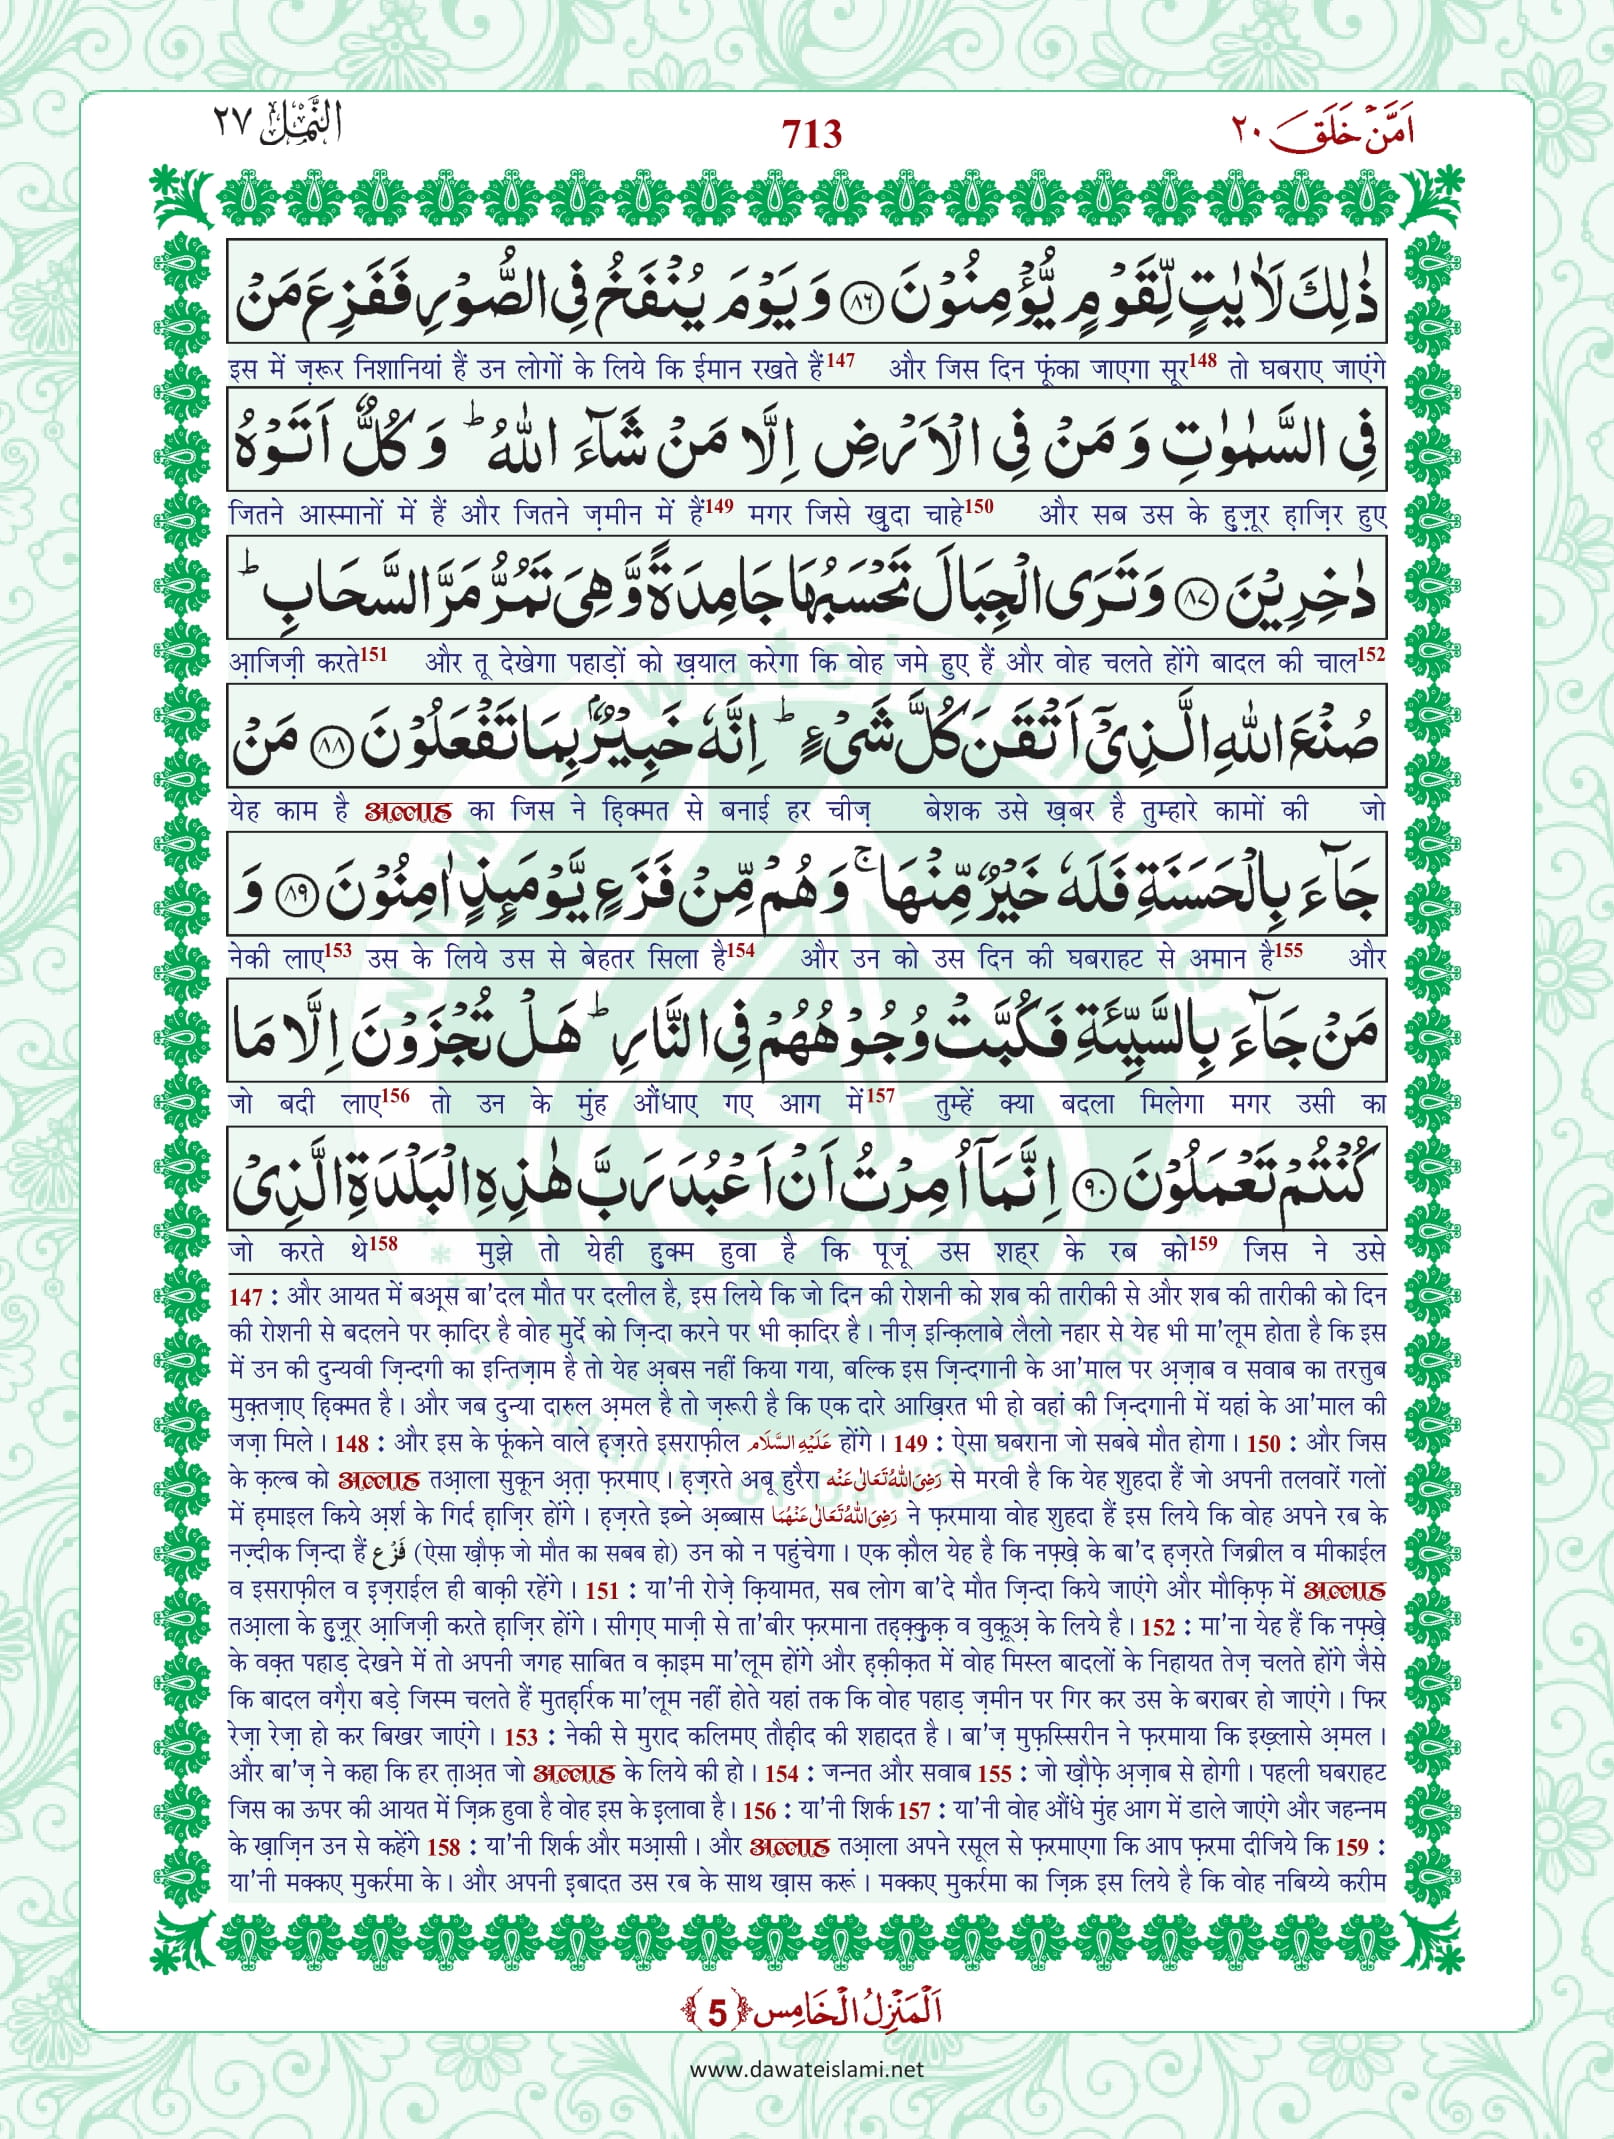 النَّمْل ٢٧
713
اَمَّنْ خَلَقَ ٢٠
ذٰلِكَ لَاٰیٰتٍ لِّقَوْمٍ یُّؤْمِنُوْنَ ﴿٨٦﴾ وَ یَوْمَ یُنْفَخُ فِی الصُّوْرِ فَفَزِعَ مَنْ
इस में ज़रूर निशानियां हैं उन लोगों के लिये कि ईमान रखते हैं147 और जिस दिन फूंका जाएगा सूर148 तो घबराए जाएंगे
فِی السَّمٰوٰتِ وَ مَنْ فِی الْاَرْضِ اِلَّا مَنْ شَآءَ اللّٰهُ ؕ وَ كُلٌّ اَتَوْهُ
जितने आस्मानों में हैं और जितने ज़मीन में हैं149 मगर जिसे ख़ुदा चाहे150 और सब उस के हुज़ूर हाज़िर हुए
دٰخِرِیْنَ ﴿٨٧﴾ وَ تَرَی الْجِبَالَ تَحْسَبُهَا جَامِدَةً وَّ هِیَ تَمُرُّ مَرَّ السَّحَابِ ؕ
आ़जिज़ी करते151 और तू देखेगा पहाड़ों को ख़याल करेगा कि वोह जमे हुए हैं और वोह चलते होंगे बादल की चाल152
صُنْعَ اللّٰهِ الَّذِیْۤ اَتْقَنَ كُلَّ شَیْءٍ ؕ اِنَّهٗ خَبِیْرٌۢ بِمَا تَفْعَلُوْنَ ﴿٨٨﴾ مَنْ
येह काम है अल्लाह का जिस ने हि़क्मत से बनाई हर चीज़ बेशक उसे ख़बर है तुम्हारे कामों की जो
جَآءَ بِالْحَسَنَةِ فَلَهٗ خَیْرٌ مِّنْهَا ۚ وَ هُمْ مِّنْ فَزَعٍ یَّوْمَىٕذٍ اٰمِنُوْنَ ﴿٨٩﴾ وَ
नेकी लाए153 उस के लिये उस से बेहतर सिला है154 और उन को उस दिन की घबराहट से अमान है155 और
مَنْ جَآءَ بِالسَّیِّئَةِ فَكُبَّتْ وُجُوْهُهُمْ فِی النَّارِ ؕ هَلْ تُجْزَوْنَ اِلَّا مَا
जो बदी लाए156 तो उन के मुंह औंधाए गए आग में157 तुम्हें क्या बदला मिलेगा मगर उसी का
كُنْتُمْ تَعْمَلُوْنَ ﴿٩٠﴾ اِنَّمَاۤ اُمِرْتُ اَنْ اَعْبُدَ رَبَّ هٰذِهِ الْبَلْدَةِ الَّذِیْ
जो करते थे158 मुझे तो येही हुक्म हुवा है कि पूजूं उस शहर के रब को159 जिस ने उसे
147 : और आयत में बअ़्स बा'दल मौत पर दलील है, इस लिये कि जो दिन की रोशनी को शब की तारीकी से और शब की तारीकी को दिन
की रोशनी से बदलने पर क़ादिर है वोह मुर्दे को ज़िन्दा करने पर भी क़ादिर है। नीज़ इन्क़िलाबे लैलो नहार से येह भी मा'लूम होता है कि इस
में उन की दुन्यवी ज़िन्दगी का इन्तिज़ाम है तो येह अ़बस नहीं किया गया, बल्कि इस ज़िन्दगानी के आ'माल पर अ़ज़ाब व सवाब का तरत्तुब
मुक़्तज़ाए हि़क्मत है। और जब दुन्या दारुल अ़मल है तो ज़रूरी है कि एक दारे आख़िरत भी हो वहां की ज़िन्दगानी में यहां के आ'माल की
जज़ा मिले। 148 : और इस के फूंकने वाले ह़ज़रते इसराफ़ील عَلَیْهِ السَّلَام होंगे। 149 : ऐसा घबराना जो सबबे मौत होगा। 150 : और जिस
के क़ल्ब को अल्लाह तआ़ला सुकून अ़ता फ़रमाए। ह़ज़रते अबू हुरैरा رَضِیَ اللّٰهُ تَعَالٰی عَنْه से मरवी है कि येह शुहदा हैं जो अपनी तलवारें गलों
में ह़माइल किये अ़र्श के गिर्द हाज़िर होंगे। ह़ज़रते इब्ने अ़ब्बास رَضِیَ اللّٰهُ تَعَالٰی عَنْهُمَا ने फ़रमाया वोह शुहदा हैं इस लिये कि वोह अपने रब के
नज़्दीक ज़िन्दा हैं فَزَع (ऐसा ख़ौफ़ जो मौत का सबब हो) उन को न पहुंचेगा। एक क़ौल येह है कि नफ़्ख़े के बा'द ह़ज़रते जिब्रील व मीकाईल
व इसराफ़ील व इज़राईल ही बाक़ी रहेंगे। 151 : या'नी रोज़े क़ियामत, सब लोग बा'दे मौत ज़िन्दा किये जाएंगे और मौक़िफ़ में अल्लाह
तआ़ला के हुज़ूर आ़जिज़ी करते हाज़िर होंगे। सीग़ए माज़ी से ता'बीर फ़रमाना तह़क़्क़ुक़ व वुक़ूअ़ के लिये है। 152 : मा'ना येह हैं कि नफ़्ख़े
के वक़्त पहाड़ देखने में तो अपनी जगह साबित व क़ाइम मा'लूम होंगे और ह़क़ीक़त में वोह मिस्ल बादलों के निहायत तेज़ चलते होंगे जैसे
कि बादल वग़ैरा बड़े जिस्म चलते हैं मुतह़र्रिक मा'लूम नहीं होते यहां तक कि वोह पहाड़ ज़मीन पर गिर कर उस के बराबर हो जाएंगे। फिर
रेज़ा रेज़ा हो कर बिखर जाएंगे। 153 : नेकी से मुराद कलिमए तौह़ीद की शहादत है। बा'ज़ मुफ़स्सिरीन ने फ़रमाया कि इख़्लासे अ़मल।
और बा'ज़ ने कहा कि हर ताअ़त जो अल्लाह के लिये की हो। 154 : जन्नत और सवाब 155 : जो ख़ौफ़े अ़ज़ाब से होगी। पहली घबराहट
जिस का ऊपर की आयत में ज़िक्र हुवा है वोह इस के इलावा है। 156 : या'नी शिर्क 157 : या'नी वोह औंधे मुंह आग में डाले जाएंगे और जहन्नम
के ख़ाज़िन उन से कहेंगे 158 : या'नी शिर्क और मआ़सी। और अल्लाह तआ़ला अपने रसूल से फ़रमाएगा कि आप फ़रमा दीजिये कि 159 :
या'नी मक्कए मुकर्रमा के। और अपनी इ़बादत उस रब के साथ ख़ास करूं। मक्कए मुकर्रमा का ज़िक्र इस लिये है कि वोह नबिय्ये करीम
اَلْمَنْزِلُ الْخَامِس ﴿5﴾
www.dawateislami.net